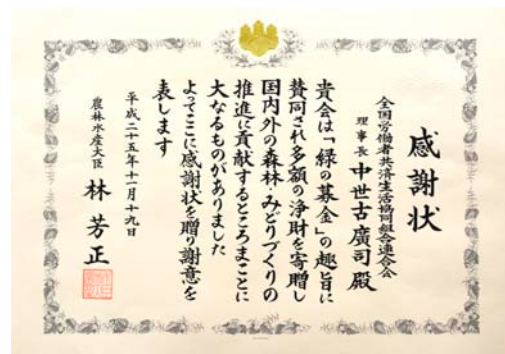 感謝状
全国労働者共済生活協同組合連合会
理事長 中世古廣司殿
貴会は「緑の募金」の趣旨に
賛同され多額の浄財を寄贈し
国内外の森林・みどりづくりの
推進に貢献するところまことに
大なるものがありました
よってここに感謝状を贈り謝意を
表します
平成二十五年十一月十九日
農林水産大臣 林芳正